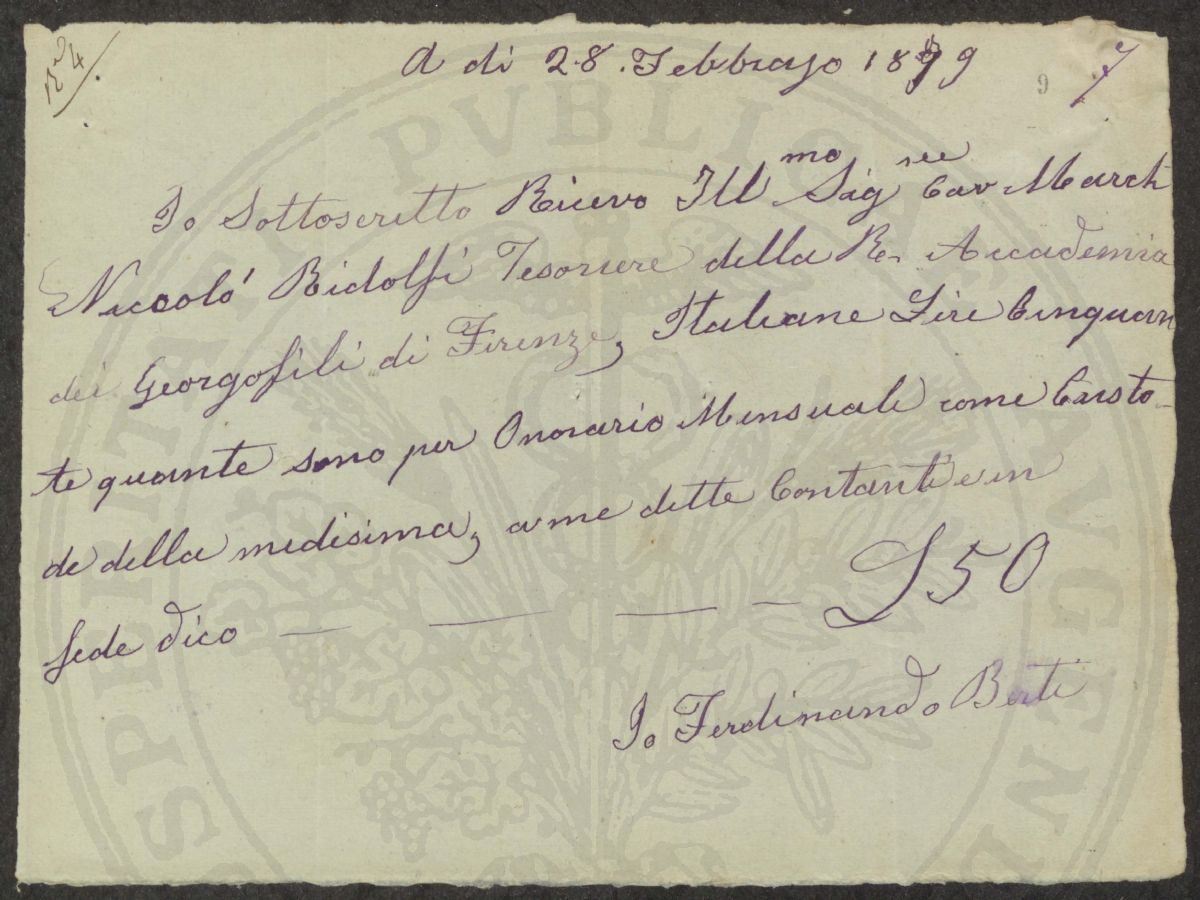 A di 28. Febbrajo 1879
7
9
Io Sottoscritto Ricevo Ill mo Sig re Cav. March
Niccoló Ridolfi Tesoriere della R. Accademia
dei Georgofili di Firenze, Italiane Lire Cinquan
te quante sono per Onorario Mensuale come Custo-
de della medisima, a me dette Contanti e in
fede dico — — — — L 50
Io Ferdinando Berti
PROSPERITATI PUBLICAE AUGENDAE